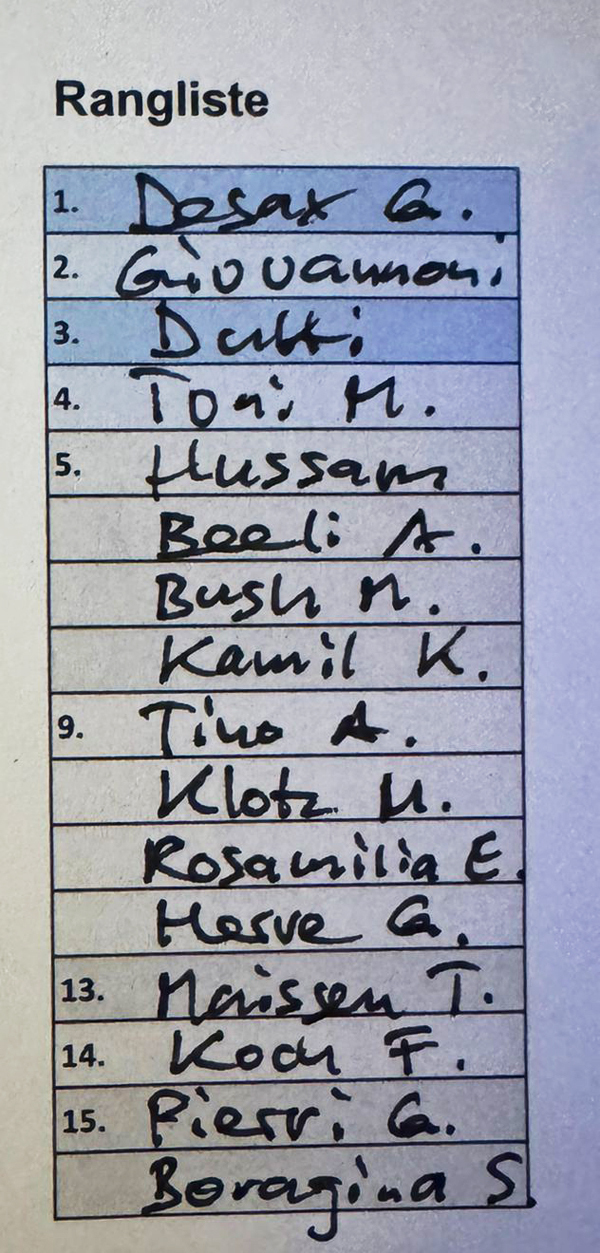 Rangliste
1. Desax G.
2. Giovannoni
3. Dultti
4. Toni M.
5. Hussam
Beeli A.
Bush M.
Kamil K.
9. Tino A.
Klotz M.
Rosamilia E.
Herve G.
13. Maissen T.
14. Koch F.
15. Pierri G.
Boragina S.